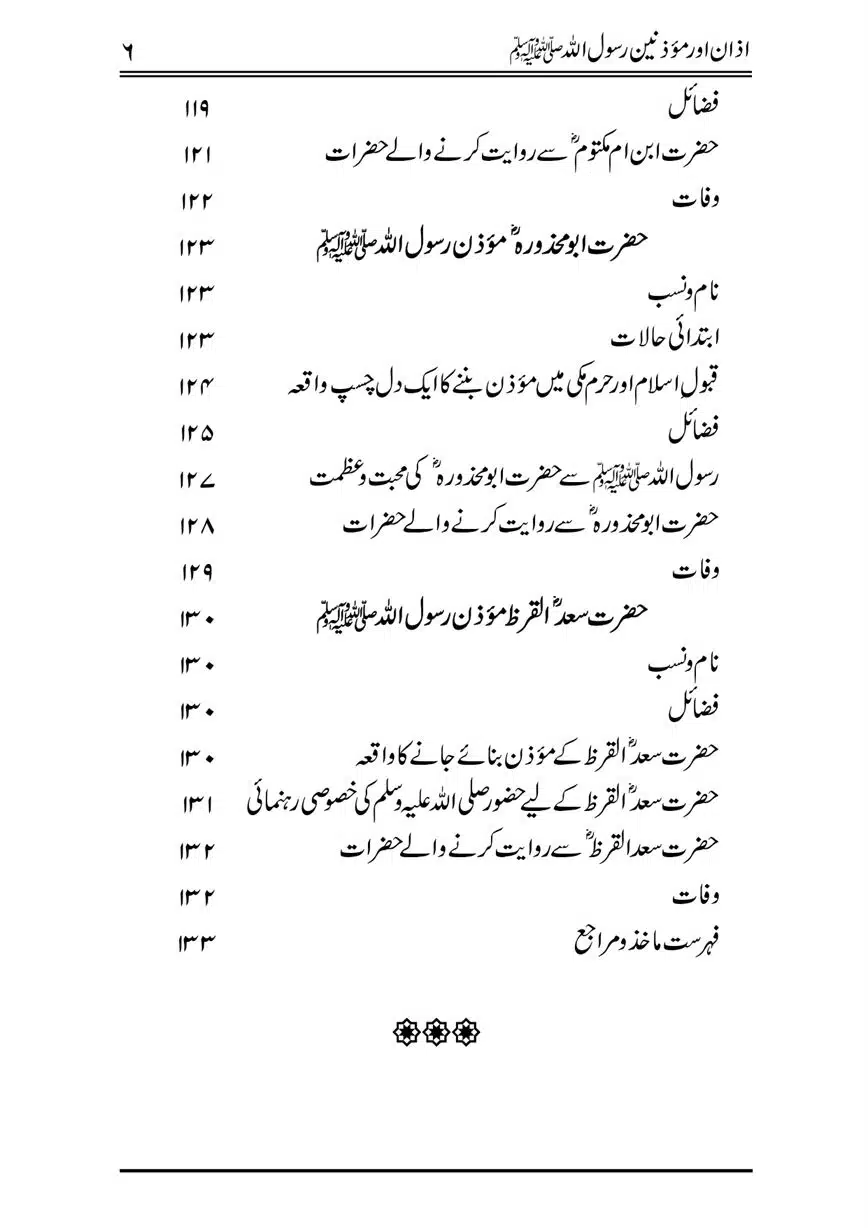 اذان اور مؤذنین رسول اللہ ﷺ ۶
فضائل ۱۱۹
حضرت ابن ام مکتومؓ سے روایت کرنے والے حضرات ۱۲۱
وفات ۱۲۲
حضرت ابومحذورہؓ مؤذن رسول اللہ ﷺ ۱۲۳
نام ونسب ۱۲۳
ابتدائی حالات ۱۲۳
قبولِ اسلام اور حرم مکی میں مؤذن بننے کا ایک دل چسپ واقعہ ۱۲۴
فضائل ۱۲۵
رسول اللہ ﷺ سے حضرت ابومحذورہؓ کی محبت وعظمت ۱۲۷
حضرت ابومحذورہؓ سے روایت کرنے والے حضرات ۱۲۸
وفات ۱۲۹
حضرت سعدؓ القرظ مؤذن رسول اللہ ﷺ ۱۳۰
نام ونسب ۱۳۰
فضائل ۱۳۰
حضرت سعدؓ القرظ کے مؤذن بنائے جانے کا واقعہ ۱۳۰
حضرت سعدؓ القرظ کے لیے حضور صلی اللہ علیہ وسلم کی خصوصی رہنمائی ۱۳۱
حضرت سعد القرظؓ سے روایت کرنے والے حضرات ۱۳۲
وفات ۱۳۲
فہرست ماخذ ومراجع ۱۳۳